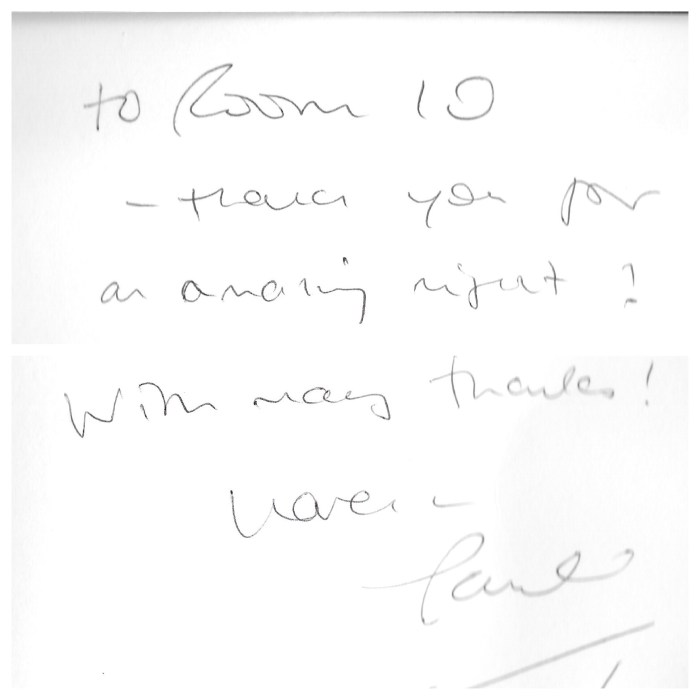 to Room 10
- thank you for
an amazing night!
With many thanks!